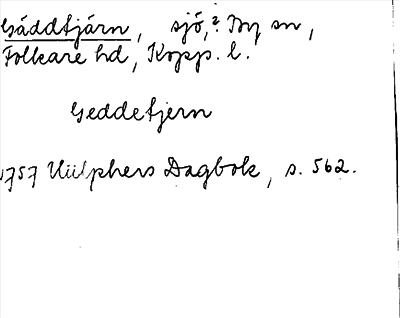 Gäddtjärn, sjö,? By sn,
Folkare hd, Kopp. l.
Geddetjern
1757 Hülphers Dagbok, s. 562.